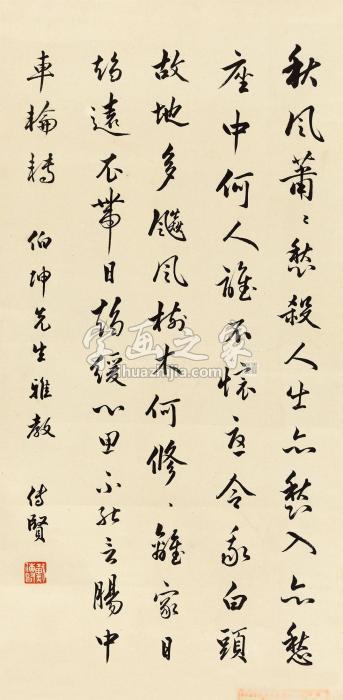 秋風蕭〻愁殺人出亦愁入亦愁
座中何人誰不懷憂令我白頭
故地多飈風樹木何修〻離家日
趨遠衣帶日趨緩心思不能言腸中
車輪轉 伯坤先生雅教 傳賢
字画之家
zihuazhijia.com